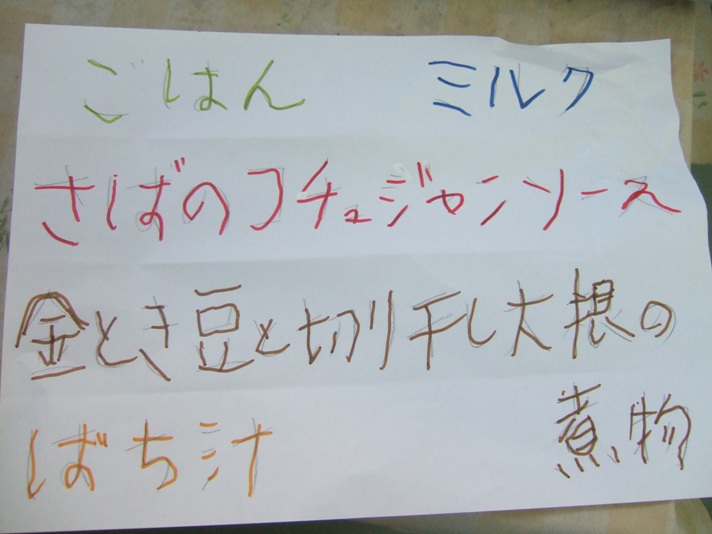 ごはん ミルク
さばのコチュジャンソース
金とき豆と切り干し大根の
煮物
ばち汁